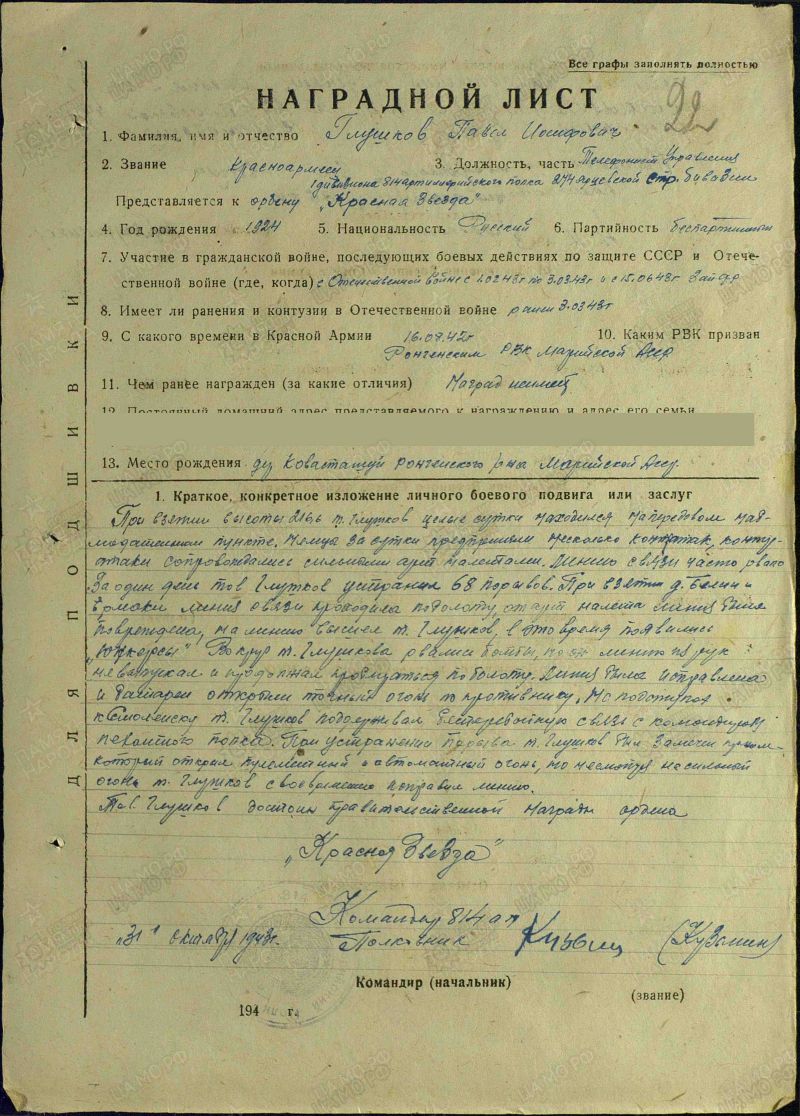 Все графы заполнять полностью
НАГРАДНОЙ ЛИСТ
22
1. Фамилия, имя и отчество Глушков Павел Иосифович
2. Звание красноармеец 3. Должность, часть Телефонист Управления
1 дивизиона 814 артиллерийского полка 274 Ярцевской стр. дивизии
Представляется к ордену "Красная Звезда"
4. Год рождения 1924 5. Национальность Русский 6. Партийность беспартийный
7. Участие в гражданской войне, последующих боевых действиях по защите СССР и Отече-
ственной войне (где, когда) с Отечественной войне с 1.02.43г по 3.03.43г и с 15.06.43г Зап фр
8. Имеет ли ранения и контузии в Отечественной войне ранен 3.03.43г
9. С какого времени в Красной Армии 16.09.42г 10. Каким РВК призван
Ронгенским РВК Марийской Асср
11. Чем ранее награжден (за какие отличия) Наград не имеет
12. Постоянный домашний адрес представляемого к награждению и адрес его семьи
13. Место рождения Ронгенского р-на Марийской Асср.
1. Краткое, конкретное изложение личного боевого подвига или заслуг
При взятии высоты 216,6 т. Глушков целые сутки находился на передовом наб-
людательном пункте. Немцы за сутки предприняли несколько контратак, контр-
атаки сопровождались сильными арт налетами. Линию связи часто рвало
За один день тов Глушков устранил 68 порывов. При взятии д. и
Ермаки линия связи проходила по болоту, от арт налета линия была
повреждена, на линию вышел т. Глушков, в это время появились
"Юнкерсы" Вокруг т. Глушкова рвались бомбы, но он линию из рук
не выпускал и продолжал продвигаться по болоту. Линия была исправлена
и батареи открыли точный огонь по противнику. На подступах
к Смоленску т. Глушков поддерживал бесперебойную связь с командиром
пехотного полка. При устранении порыва т. Глушков был замечен
который открыл пулеметный и автоматный огонь, но несмотря на сильный
огонь т. Глушков своевременно исправил линию.
Тов. Глушков достоин правительственной награды ордена
"Красная Звезда"
Командир 814 ап
"31" октября 1943г. Полковник (Кузьмин)
Командир (начальник)
(звание)
194 г.
ДЛЯ ПОДШИВКИ